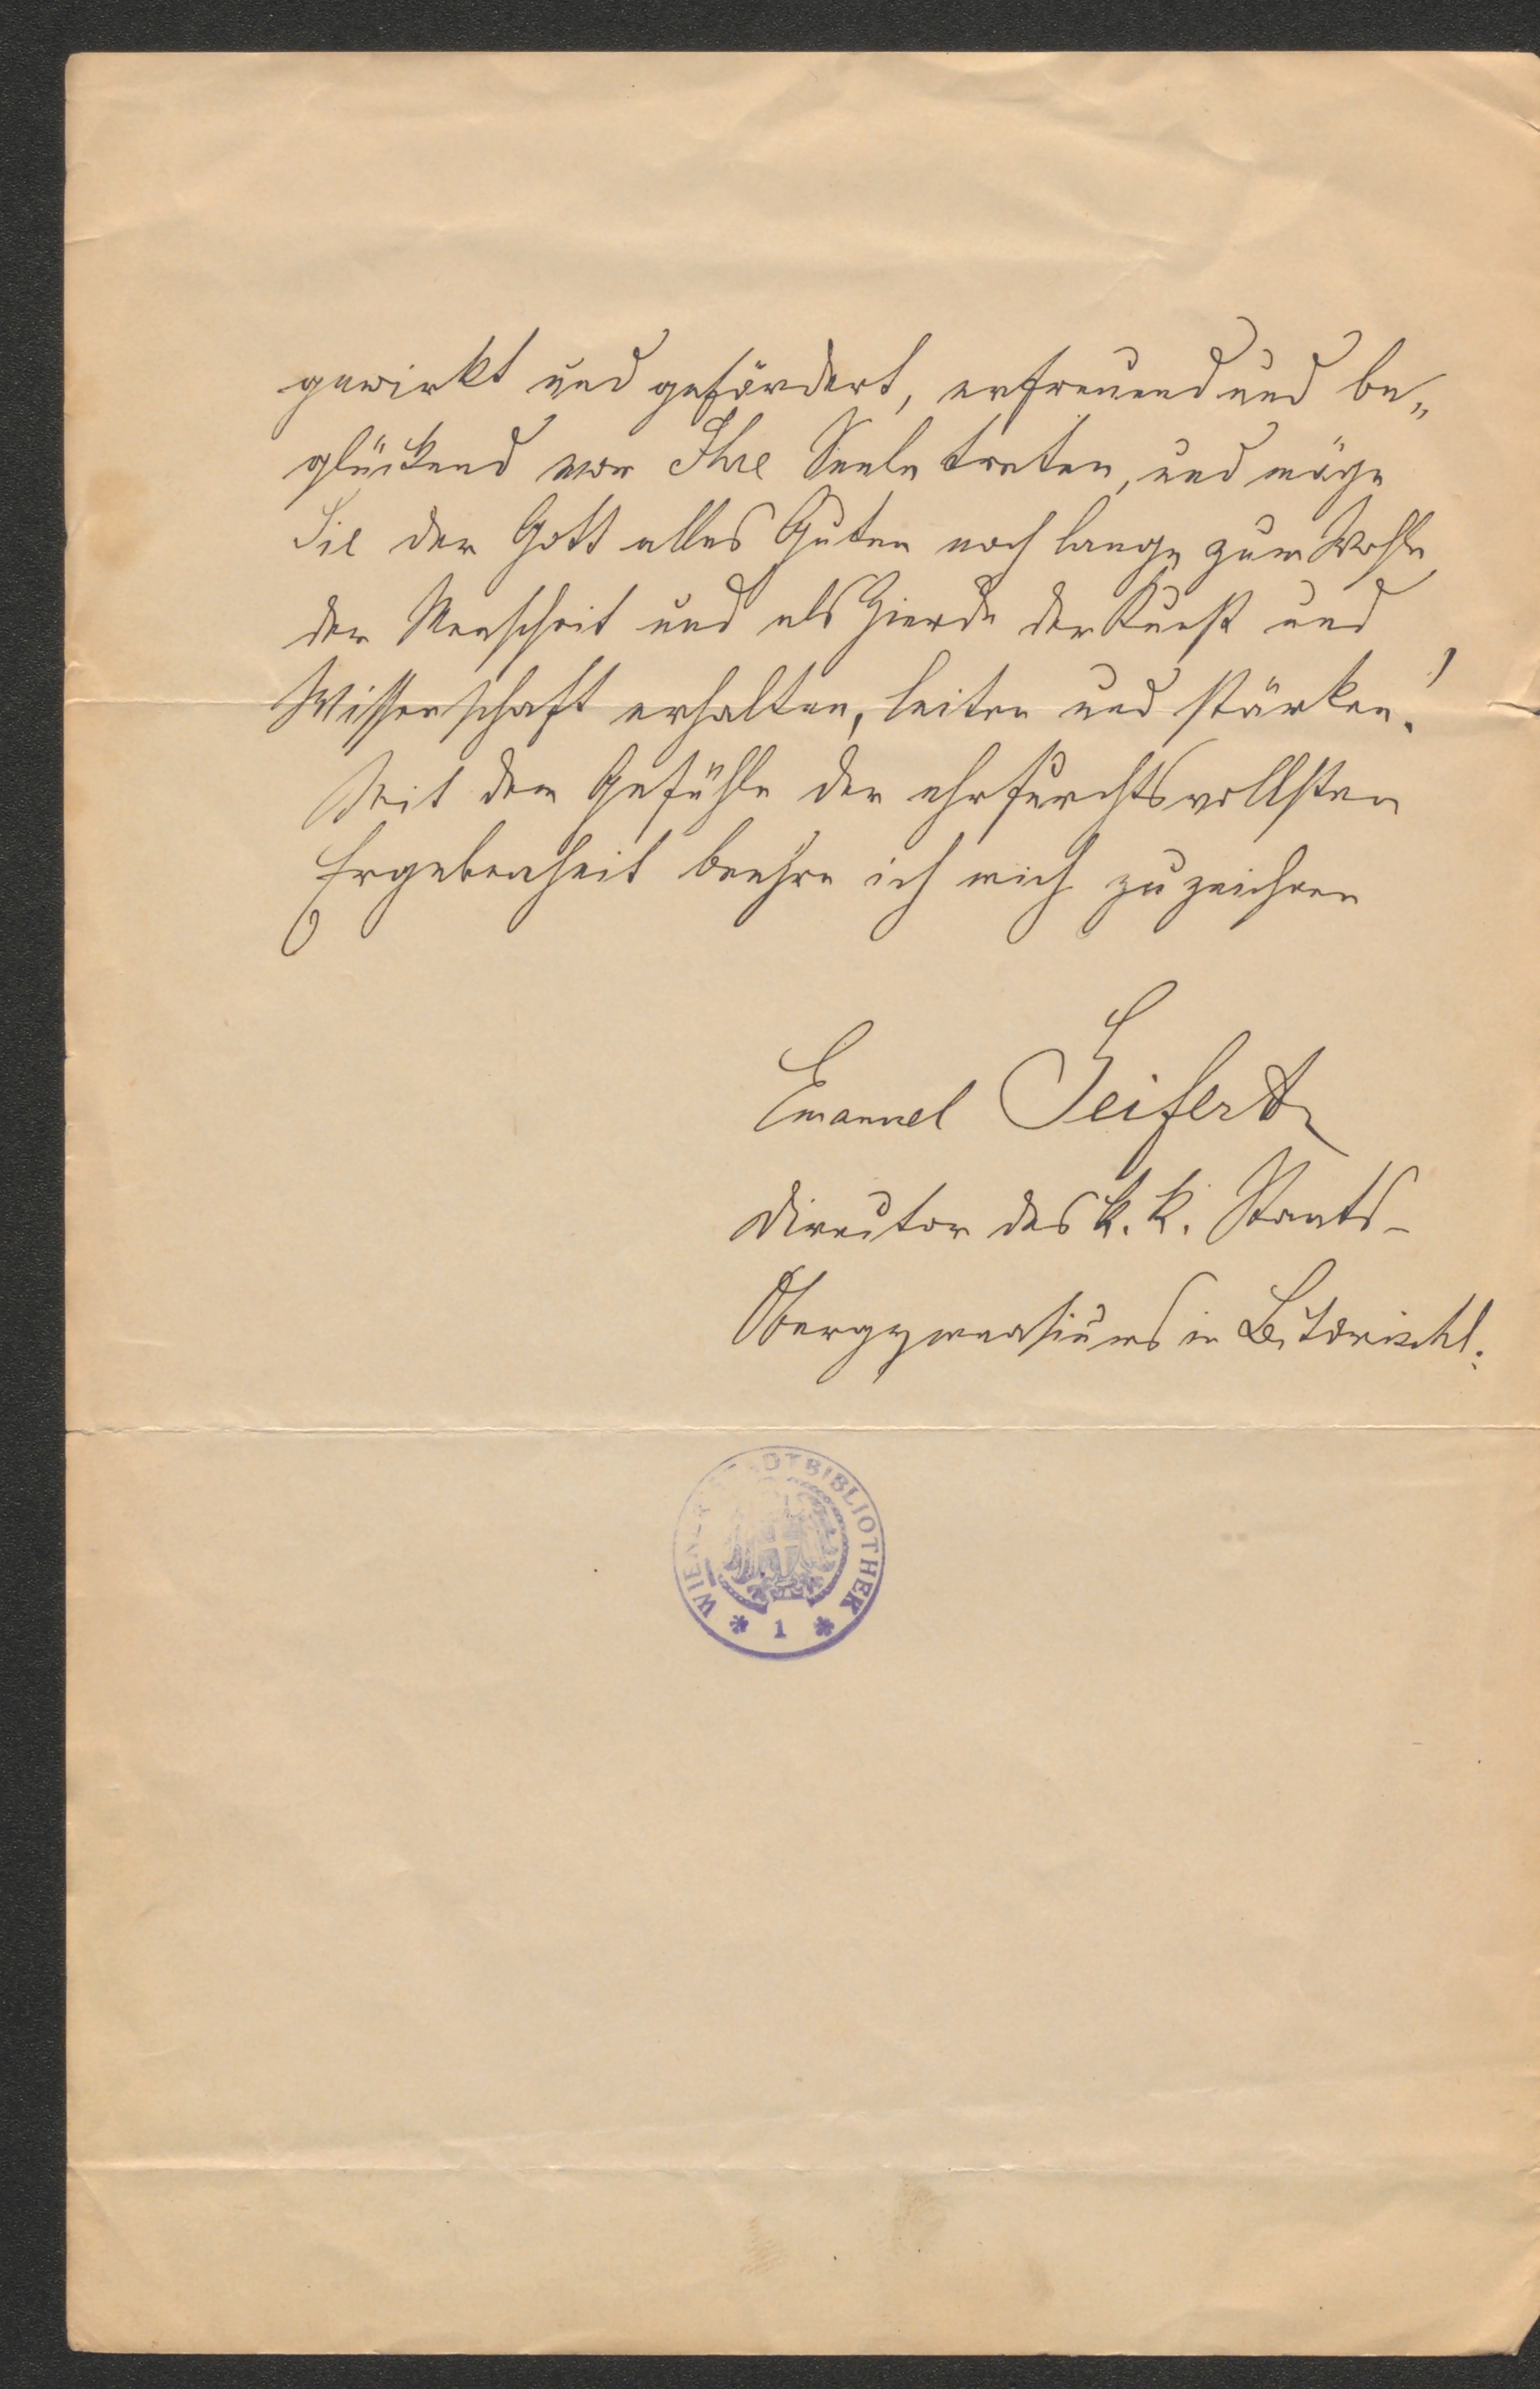 gewirkt und gefördert, erfreuend und be„
glückend vor Ihre Seele treten, und möge
Sie der Gott alles Guten noch lange zum Wohle
der Menschheit und als Zierde der Kunst und
Wissenschaft erhalten, leiten und stärken!
Mit dem Gefühle der ehrfurchtsvollsten
Ergebenheit beehre ich mich zu zeichnen
Emanuel Seifert
Director des k. k. Staats-
Obergymnasiums in
WIENER STADTBIBLIOTHEK
* 1 *